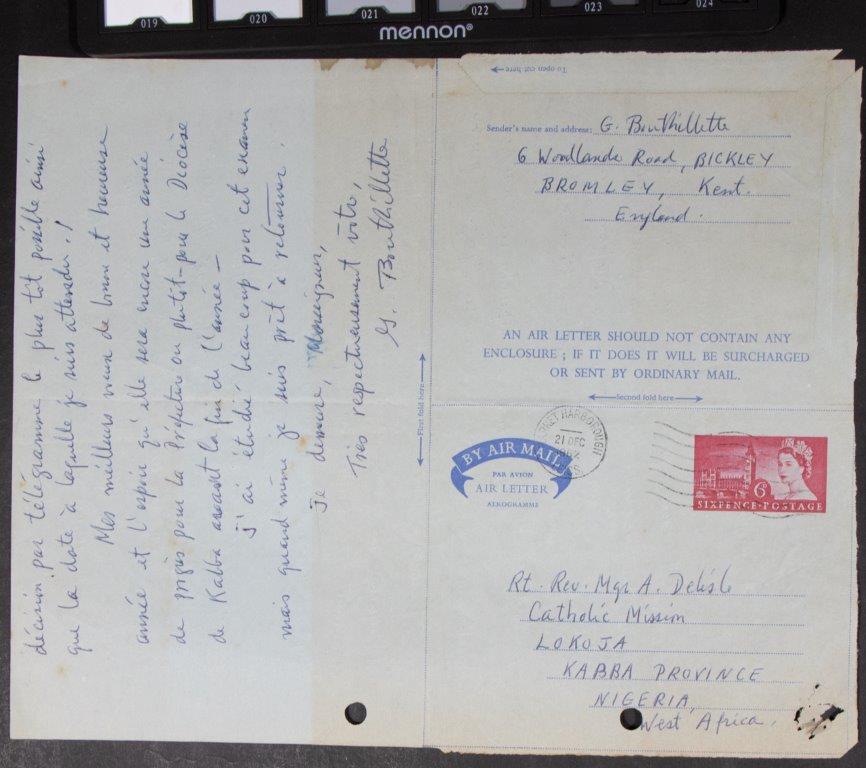 019 020 021 022 023 024
mennon®
décision par télégramme le plus tôt possible ainsi
que la date à laquelle je suis attendu.!
Mes meilleurs voeux de bonne et heureuse
année et l'espoir qu'elle sera encore une année
de progrès pour la Préfecture ou plutôt pour le Diocèse
de Kabba avant la fin de l'année –
J'ai étudié beaucoup pour cet examen
mais quand même je suis prêt à retourner.
Je demeure, Monseigneur,
Très respectueusement vôtre,
G. Bouthillette
To open cut here
Sender's name and address: G. Bouthillette
6 Woodlands Road, BICKLEY
BROMLEY, Kent.
England.
AN AIR LETTER SHOULD NOT CONTAIN ANY
ENCLOSURE ; IF IT DOES IT WILL BE SURCHARGED
OR SENT BY ORDINARY MAIL.
First fold here
Second fold here
BY AIR MAIL
PAR AVION
AIR LETTER
AEROGRAMME
HARBOROUGH
21 DEC
6D
SIXPENCE·POSTAGE
Rt. Rev. Mgr A. Delisle
Catholic Mission
LOKOJA
KABBA PROVINCE
NIGERIA,
West Africa.